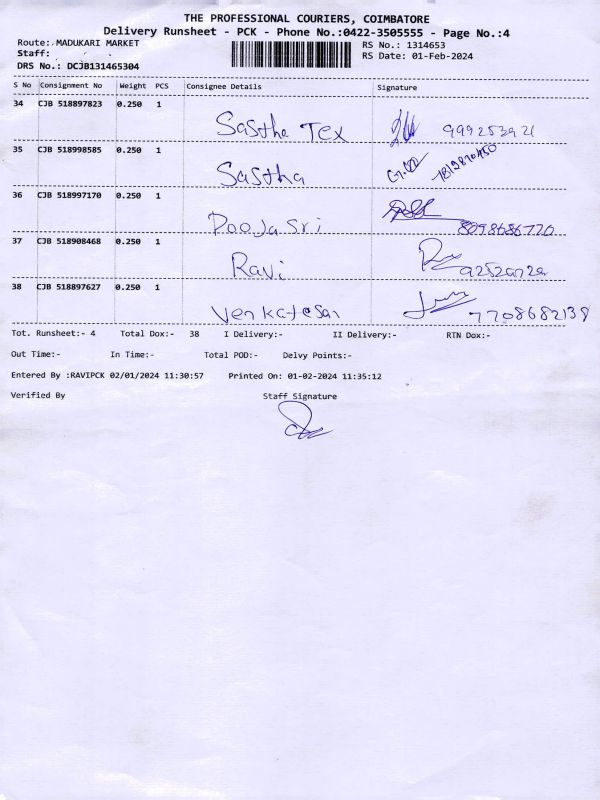 THE PROFESSIONAL COURIERS, COIMBATORE
Delivery Runsheet - PCK - Phone No.:0422-3505555 - Page No.:4
Route: MADUKARI MARKET RS No.: 1314653
Staff: RS Date: 01-Feb-2024
DRS No.: DCJB131465304
S No Consignment No Weight PCS Consignee Details Signature
34 CJB 518897823 0.250 1 Sastha Tex
35 CJB 518998585 0.250 1 Sastha
36 CJB 518997170 0.250 1 Poojasri 8098686770
37 CJB 518908468 0.250 1 Ravi
38 CJB 518897627 0.250 1 Venkatesan 7708682138
Tot. Runsheet:- 4 Total Dox:- 38 I Delivery:- II Delivery:- RTN Dox:-
Out Time:- In Time:- Total POD:- Delvy Points:-
Entered By :RAVIPCK 02/01/2024 11:30:57 Printed On: 01-02-2024 11:35:12
Verified By Staff Signature